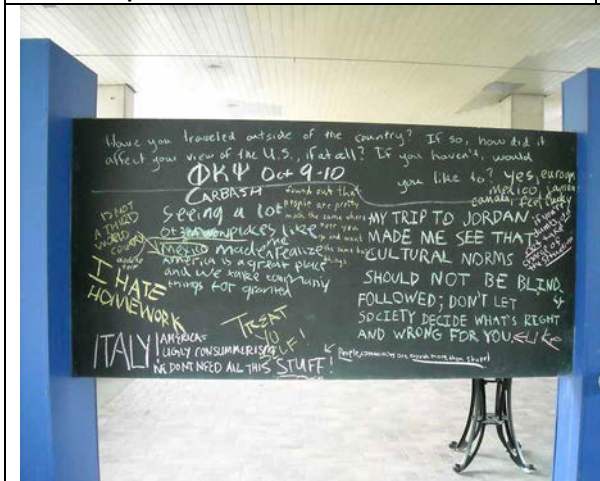 Have you traveled outside of the country? If so, how did it
affect your view of the U.S., if at all? If you haven't, would
you like to?
ΦΚΨ Oct 9-10
CARBASH
yes, europe
mexico,
canada, feel lucky
found out that
people are pretty
much the same where
ever you
go and want
the same
things
Seeing a lot
of places like
Mexico made me realize
America is a great place
and we take so many
things for granted
IS NOT
A THIRD
WORLD
COUNTRY
I HATE
HOMEWORK
MY TRIP TO JORDAN
MADE ME SEE THAT
CULTURAL NORMS
SHOULD NOT BE BLINDLY
FOLLOWED; DON'T LET
SOCIETY DECIDE WHAT'S RIGHT
AND WRONG FOR YOU
Like
TREAT
YO
SELF!
ITALY!
AMERICA=
UGLY CONSUMMERISM
WE DONT NEED ALL THIS STUFF!
People, communities are much more than stupid